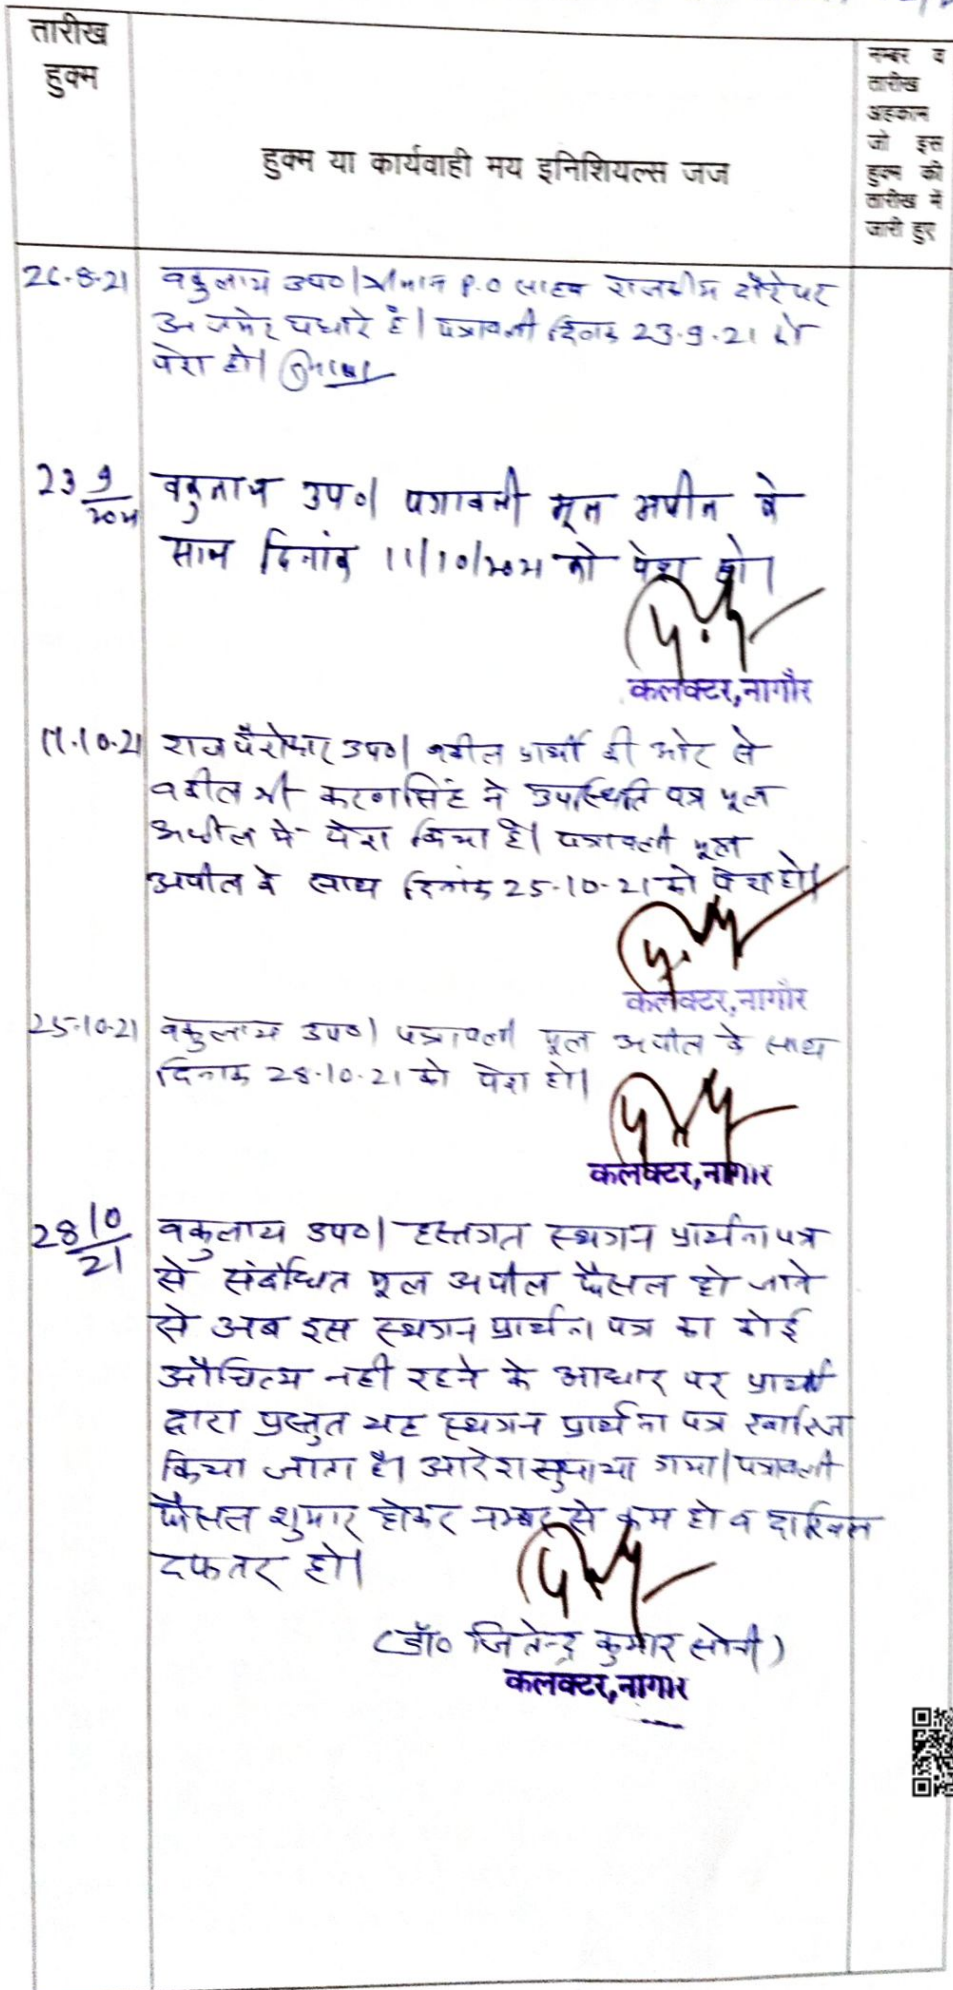 तारीख
हुक्म
हुक्म या कार्यवाही मय इनिशियल्स जज
नम्बर व
तारीख
अहकाम
जो इस
हुक्म की
तारीख में
जारी हुए
26-8-21 वकुलाय उप०। श्रीमान P.O साहब राजकीय दौरे पर
अजमेर पधारे है। पत्रावली दिनांक 23-9-21 को
पेश हो।
23 9/2021 वकुलाय उप०। पत्रावली मूल अपील के
साथ दिनांक 11/10/2021 को पेश हो।
कलक्टर,नागौर
11-10-21 राज पैरोकार उप०। वकील प्रार्थी की ओर से
वकील श्री करणसिंह ने उपस्थिति पत्र मूल
अपील में पेश किया है। पत्रावली मूल
अपील के साथ दिनांक 25-10-21 को पेश हो।
कलक्टर,नागौर
25-10-21 वकुलाय उप०। पत्रावली मूल अपील के साथ
दिनांक 28-10-21 को पेश हो।
कलक्टर,नागौर
28 10/21 वकुलाय उप०। हस्तगत स्थगन प्रार्थना पत्र
से संबंधित मूल अपील फैसल हो जाने
से अब इस स्थगन प्रार्थना पत्र का कोई
औचित्य नही रहने के आधार पर प्रार्थी
द्वारा प्रस्तुत यह स्थगन प्रार्थना पत्र खारिज
किया जाता है। आदेश सुनाया गया। पत्रावली
फैसल शुमार होकर नम्बर से कम हो व दाखिल
दफतर हो।
(डॉ० जितेन्द्र कुमार सोनी)
कलक्टर,नागौर